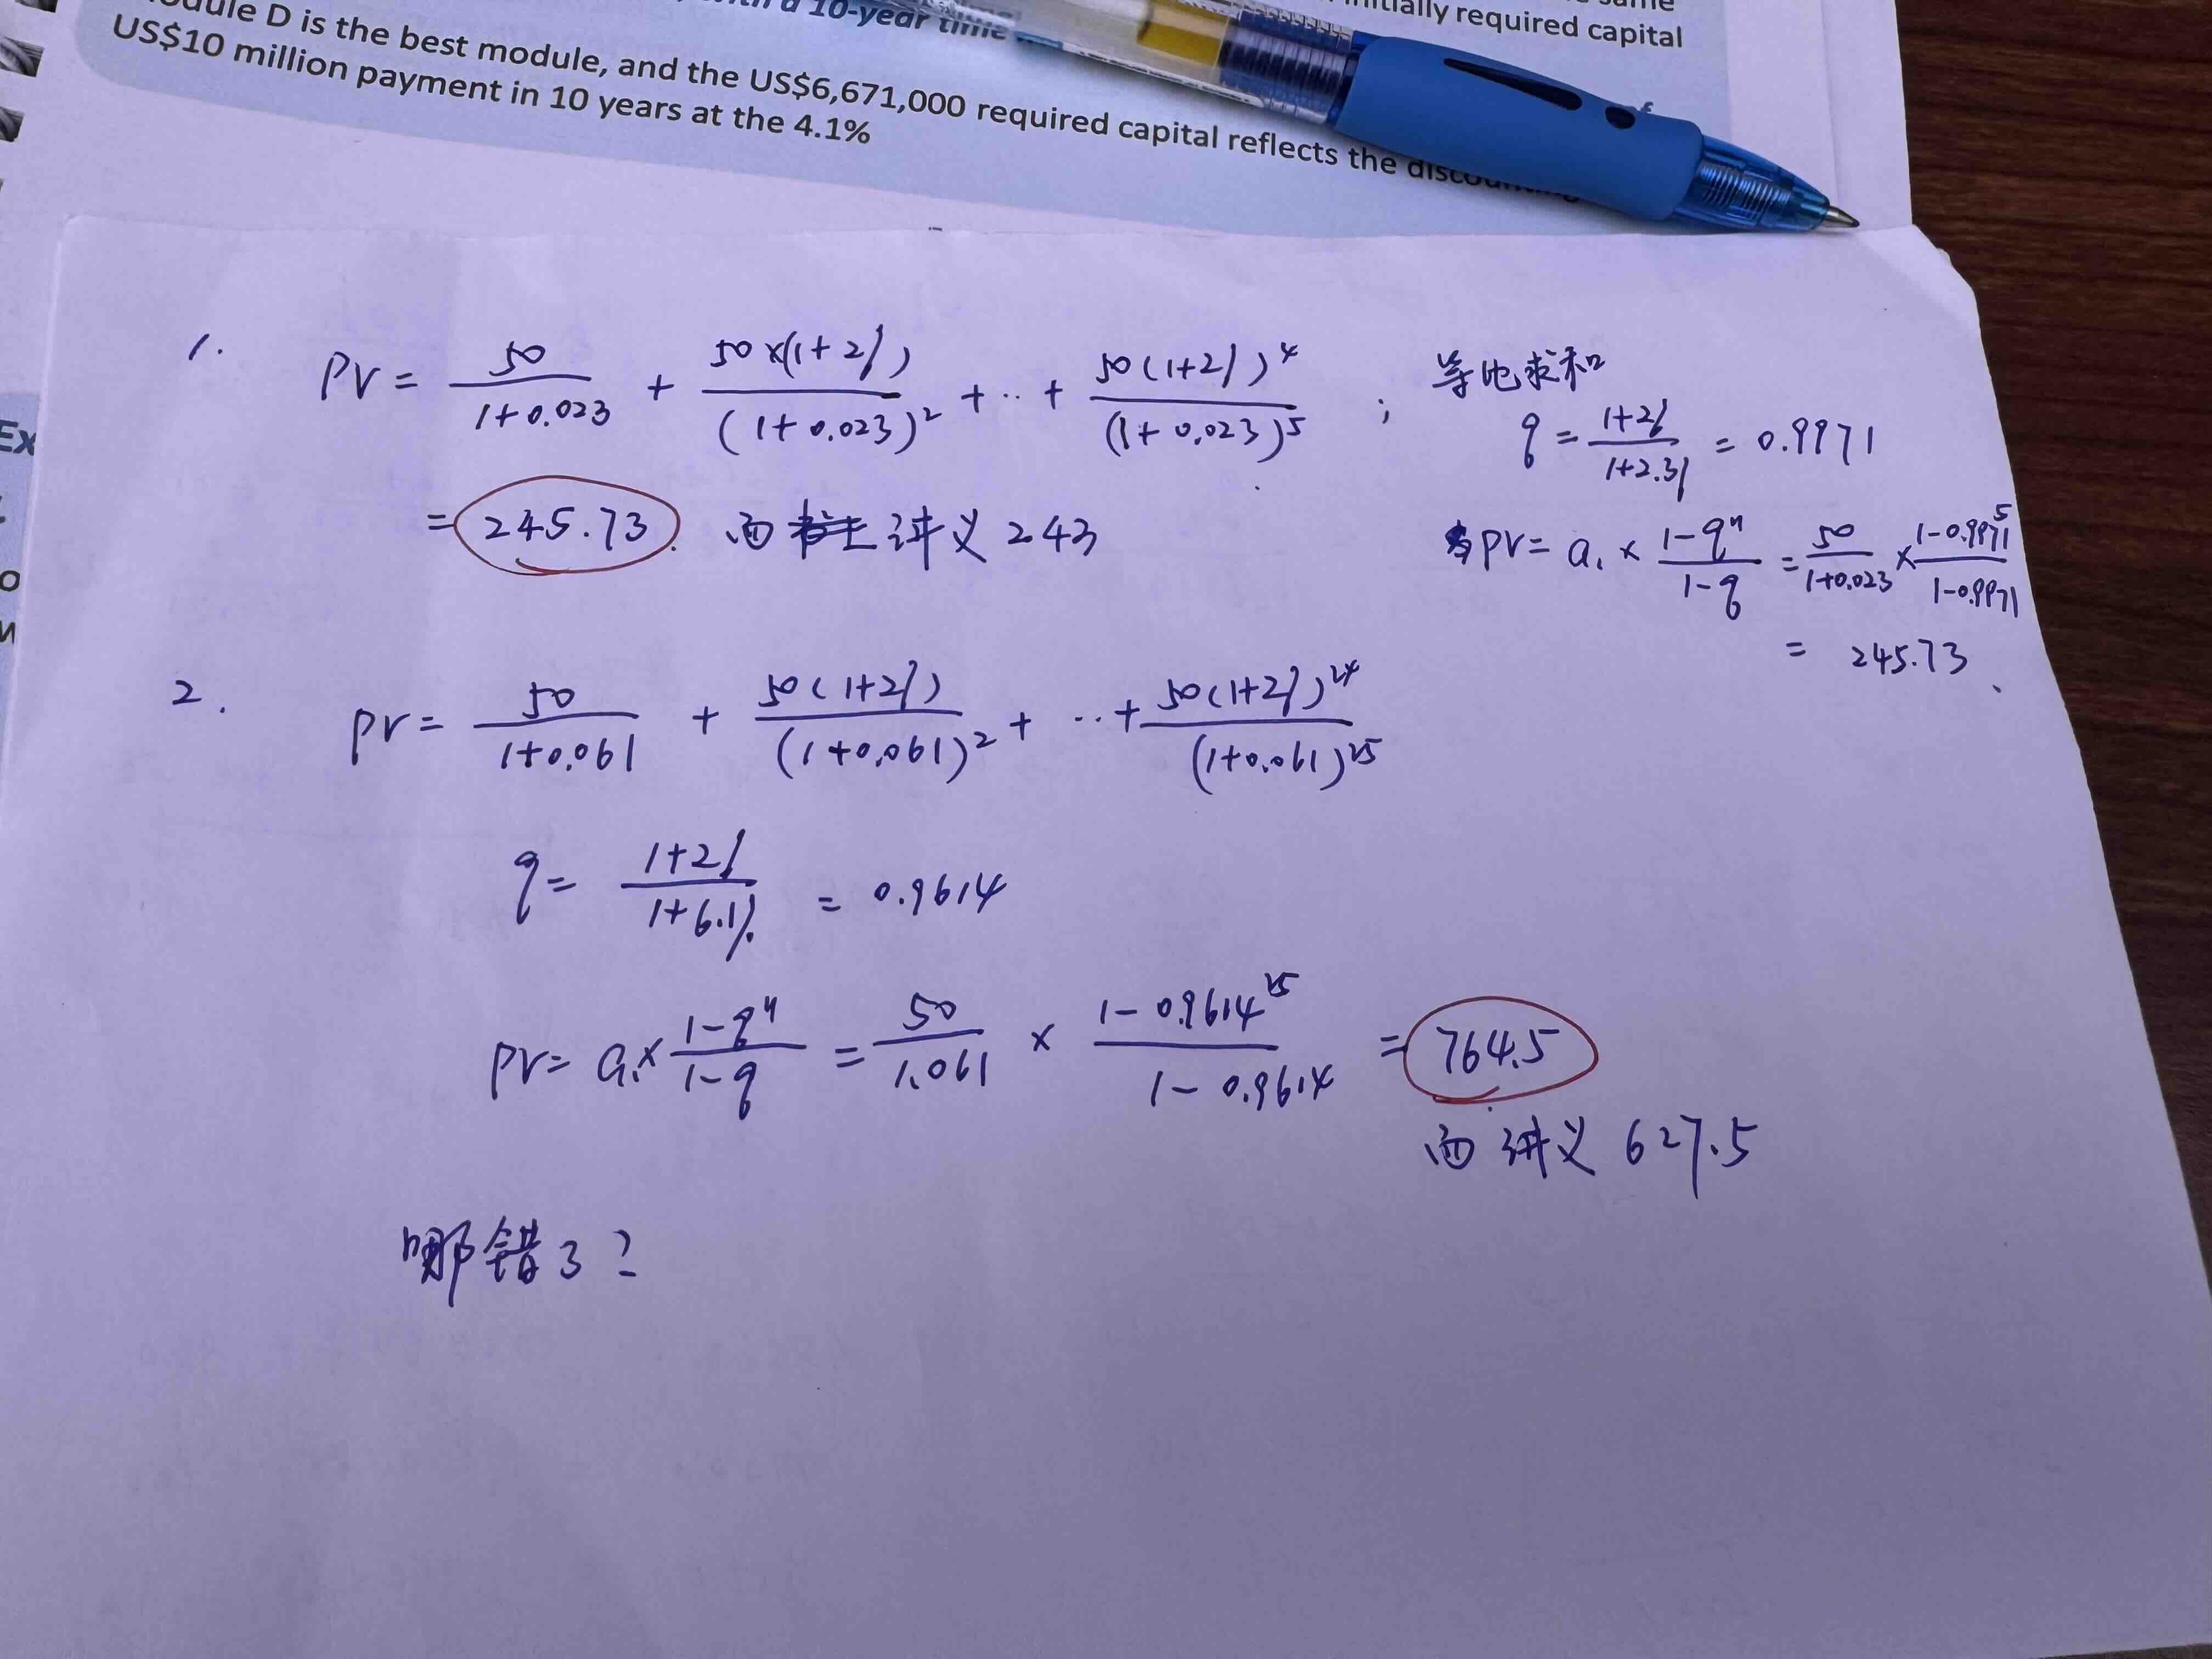 ule D is the best module, and the US$6,671,000 required capital reflects the
10-year time
initially required capital
US$10 million payment in 10 years at the 4.1%
Ex
1. PV = 50/(1+0.023) + 50×(1+2%)/(1+0.023)² + ·· + 50(1+2%)⁴/(1+0.023)⁵ ; 等比求和
q = (1+2%)/(1+2.3%) = 0.9971
= 245.73. 而讲义 243
PV = a₁ × (1-qⁿ)/(1-q) = 50/(1+0.023) × (1-0.9971⁵)/(1-0.9971)
= 245.73
2. PV = 50/(1+0.061) + 50(1+2%)/(1+0.061)² + ·· + 50(1+2%)²⁴/(1+0.061)²⁵
q = (1+2%)/(1+6.1%) = 0.9614
PV = a₁ × (1-qⁿ)/(1-q) = 50/1.061 × (1-0.9614²⁵)/(1-0.9614) = 764.5
而讲义 627.5
哪错了?